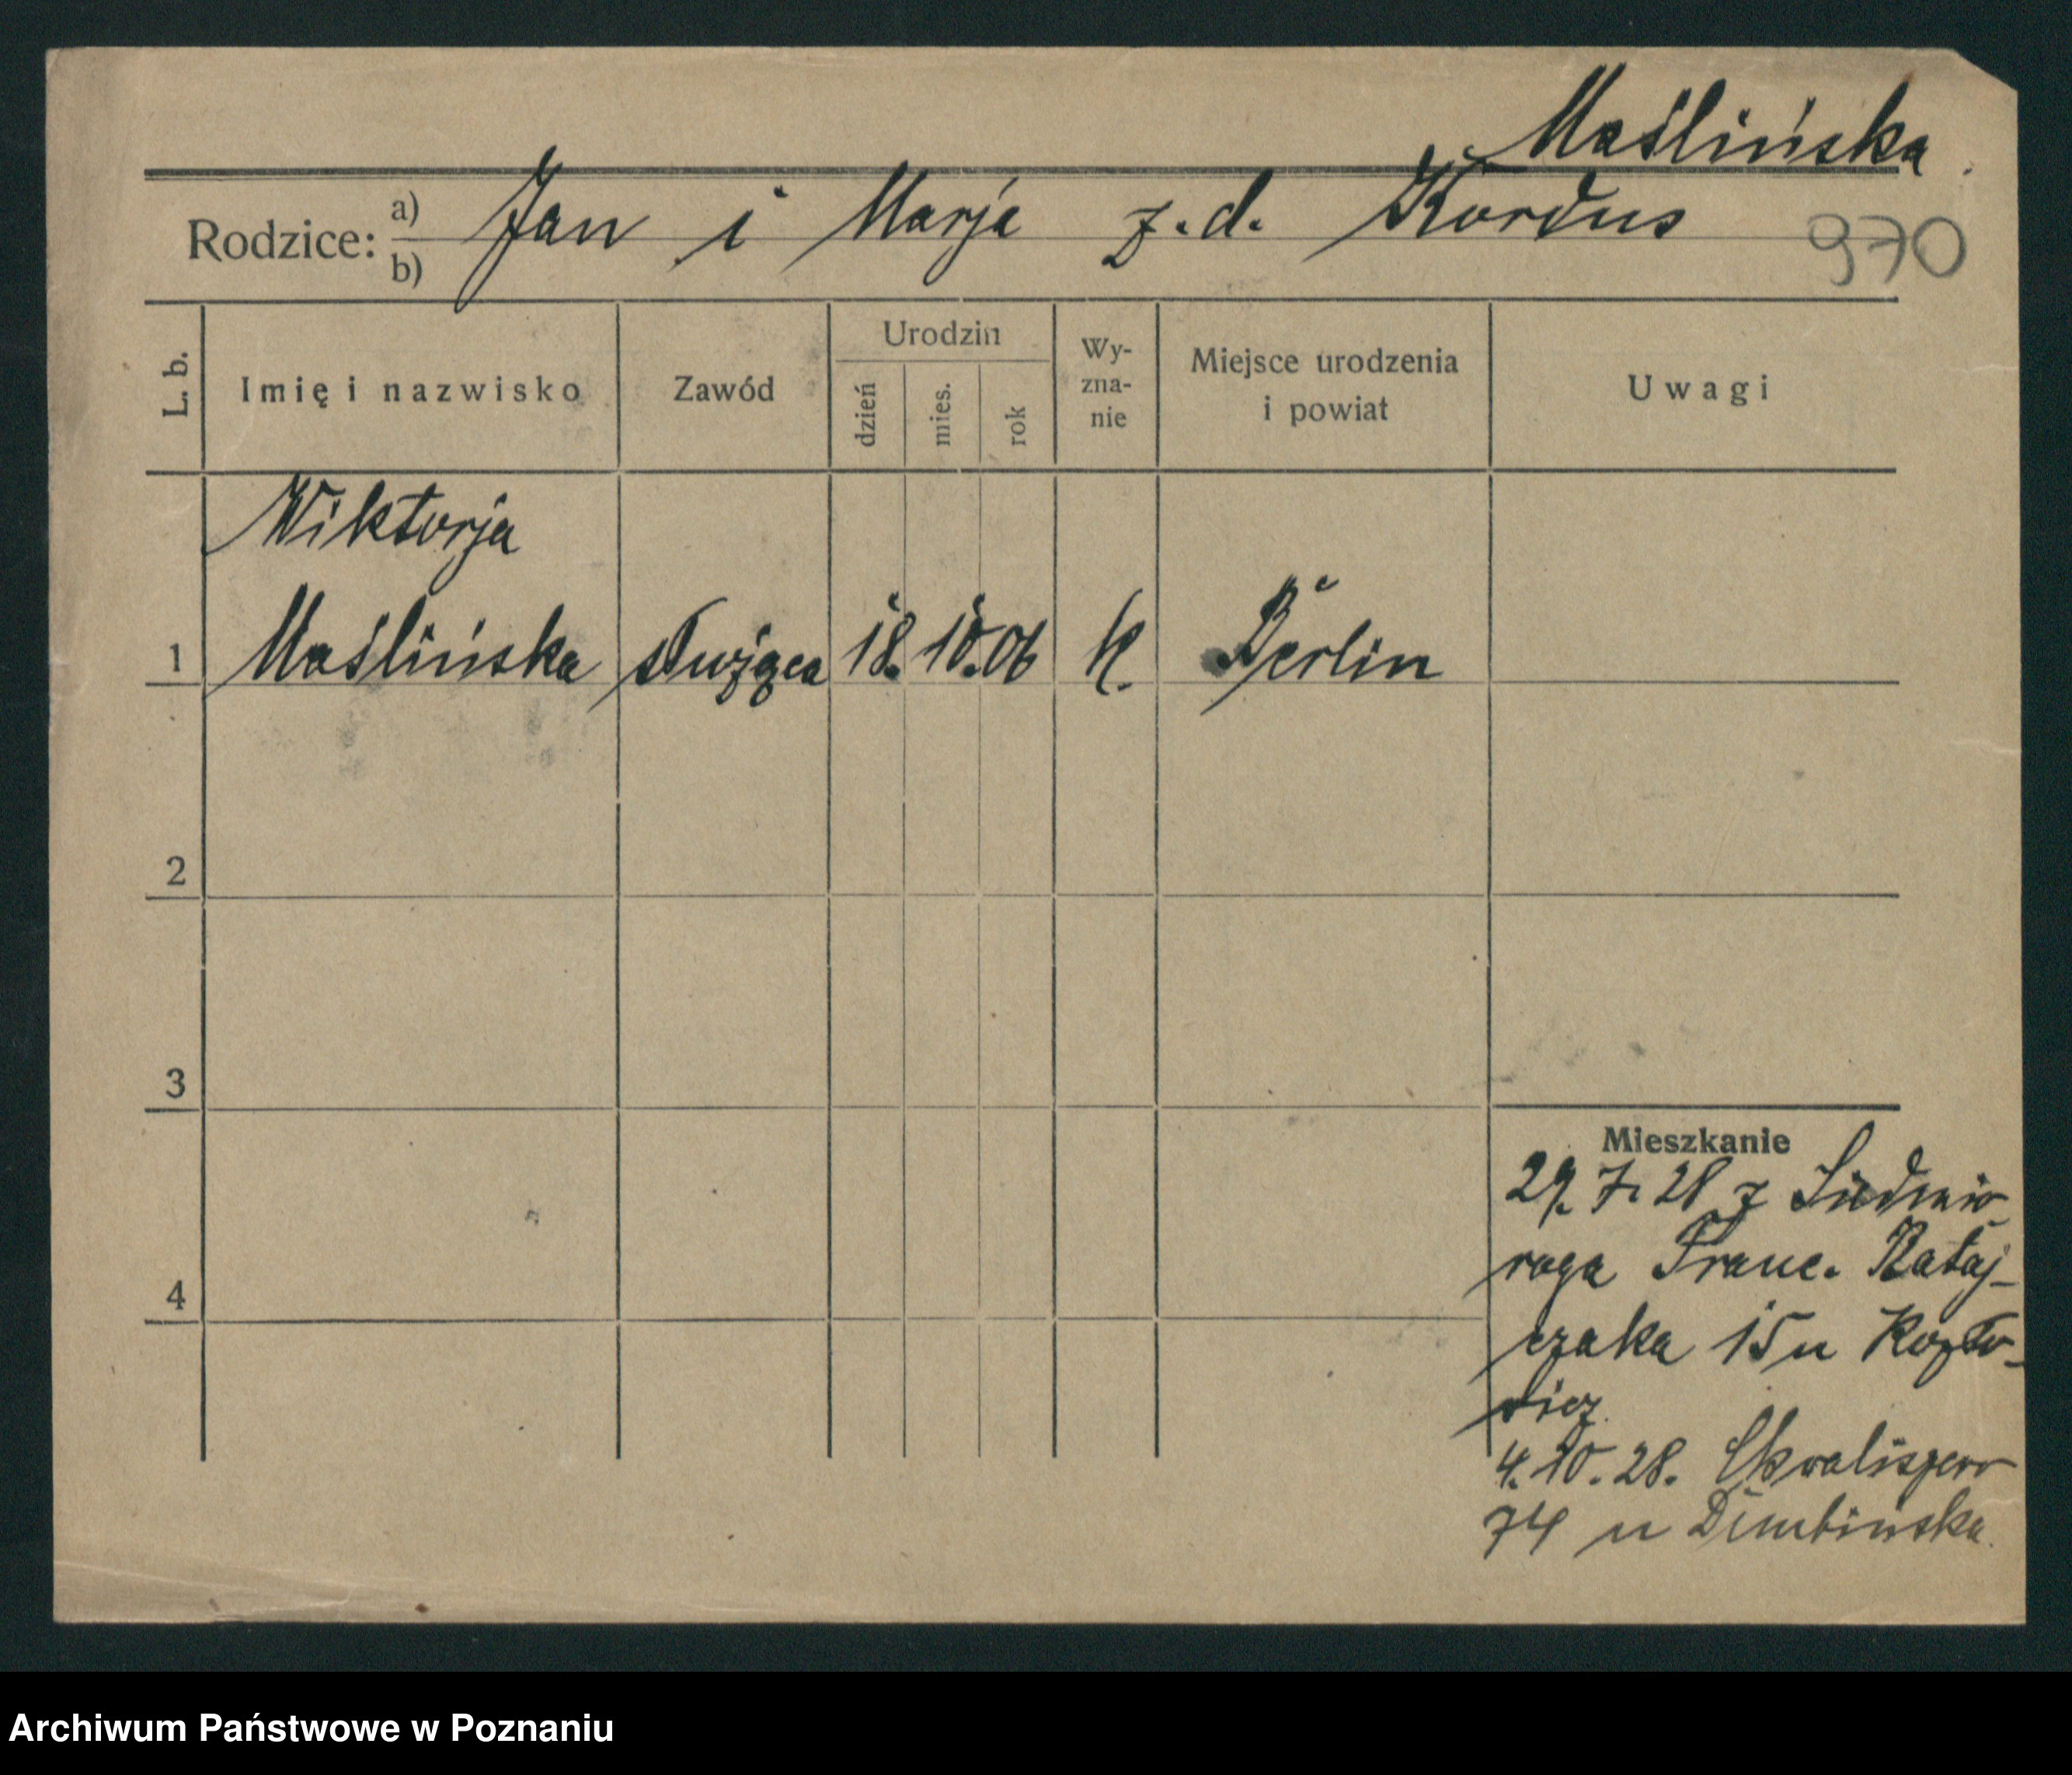 Maślińska
Rodzice: a) b) Jan i Marja z.d. Kordus
970
L. b.
Imię i nazwisko
Zawód
Urodzin
dzień
mies.
rok
Wy-
zna-
nie
Miejsce urodzenia
i powiat
Uwagi
Wiktorja
1 Maślińska służąca 18. 10. 06 k. Berlin
2
3
4
Mieszkanie
29. 7. 28 z Siedmio
roga Franc. Rataj-
czaka 15 u Kozło-
wicz
4. 10. 28. Chwaliszewo
74 u Dembińska.
Archiwum Państwowe w Poznaniu